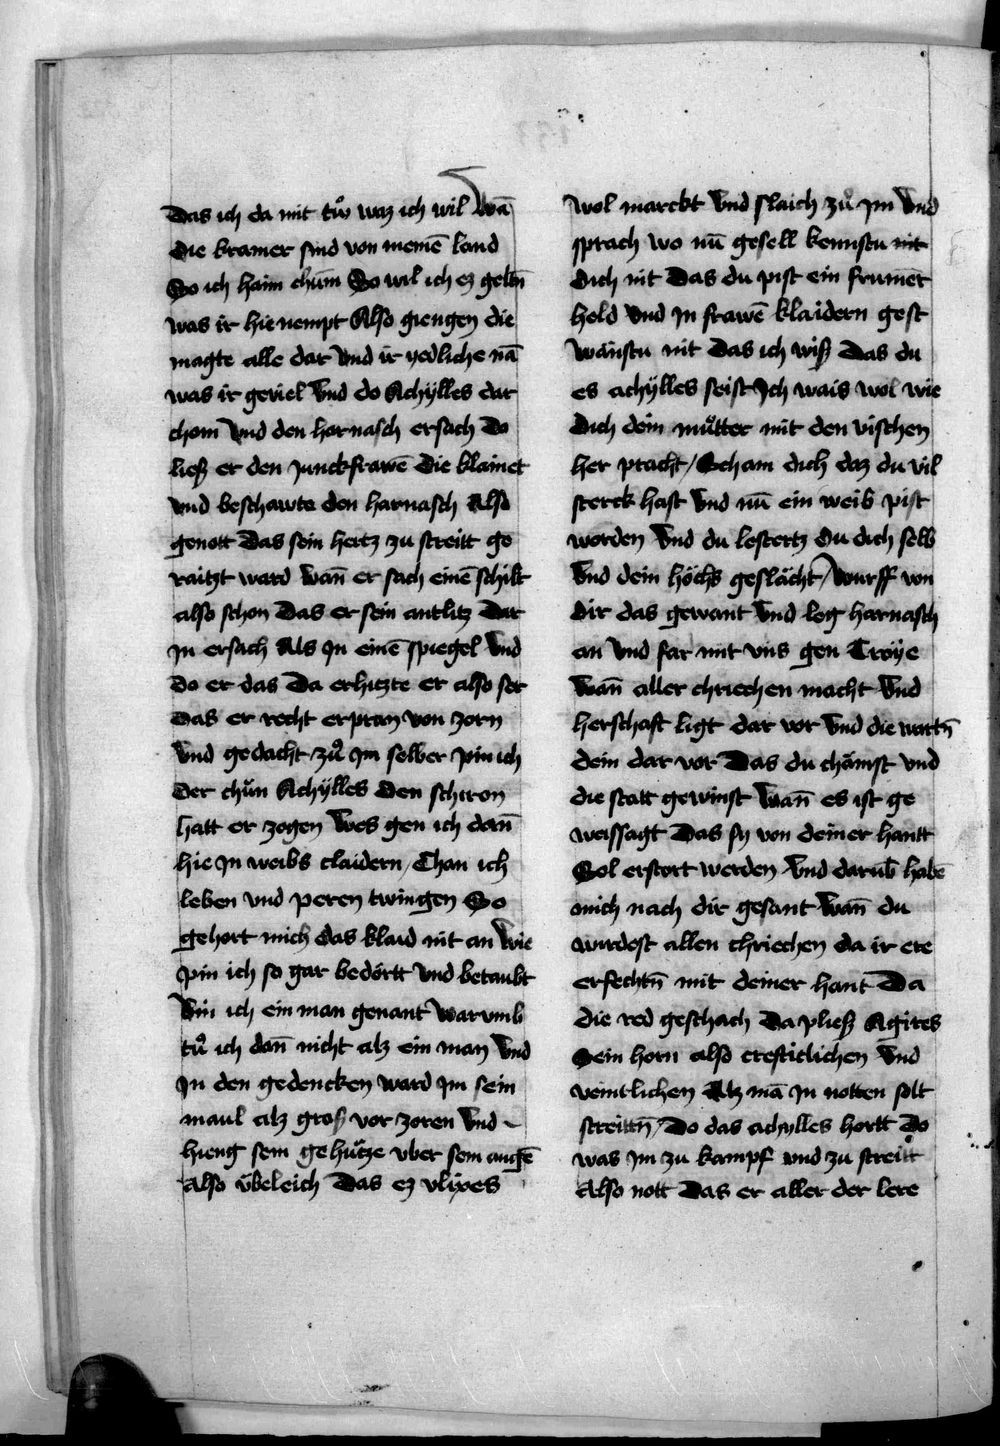 Das ich da mit tuͦ waz ich wil wā
die kramer sind von meinē land
So ich haim chum So wil ich ez geltn̄
was ir hie nempt Also giengen die
magte alle dar vnd ir yedliche nā
was ir geviel vnd do Achÿlles dar
chom vnd den harnasch ersach Do
ließ er den Junckfrawē die klainet
vnd beschawte den harnasch Also
genott Das sein hertz zu streitt ge
raitzt ward wan̄ er sach einē schilt
also schon Das er sein antlitz Dar
Jn ersach Als Jn einē spiegel vnd
do er das Da erhitzte er also ser
Das er recht erpran von zorn
vnd gedacht zuͦ Jm selber pin ich
Der chün Achÿlles Den schiron
hatt er zogen wes gen ich dan̄
hie Jn weibs claidern / Chan ich
leben vnd peren twingen So
gehort mich das klaid nit an wie
pin ich so gar bedörtt vnd betaubt
bin ich ein man genant warumb
tuͦ ich dan̄ nicht alz ein man vnd
Jn den gedencken ward Jm sein
maul alz groß vor zoren vnd
hieng sein gehütze vber sein augē
Also übeleich Das ez vlixes
wol marckt vnd slaich zuͦ Jm vnd
sprach wo nū gesell kennstu nit
dich nit Das du pist ein frumer
held vnd Jn frawē klaidern gest
wänstu nit Das ich wiß Das du
es achÿlles seist Jch wais wol wie
dich dein muͦtter mit den vischen
her pracht / Scham dich daz du vil
sterck hast vnd nū ein weib pist
worden vnd du lestertz du dich selb
vnd dein höchs geslächt / wurff von
dir das gewant vnd leg harnasch
an vnd far mit vns gen Troÿe
wan̄ aller chriechen macht vnd
herschaft ligt dar vor vnd die wartn̄
dein dar vor Das du chämst vnd
die statt gewinst wan̄ es ist ge
weissagt Das sy von deiner hantt
Sol erstort werden vnd darūb habē
mich nach dir gesant wan̄ du
wurdest allen chriechen da ir ere
erfechtn̄ mit deiner hant Da
die red geschach Da pließ Agires
Sein horn also crefticlichen vnd
veintlichen Alz mā Jn notten solt
streittn̄ / Do das achylles hortt Do
was Jm zu kampf vnd zu streitt
Also nott Das er aller der lere